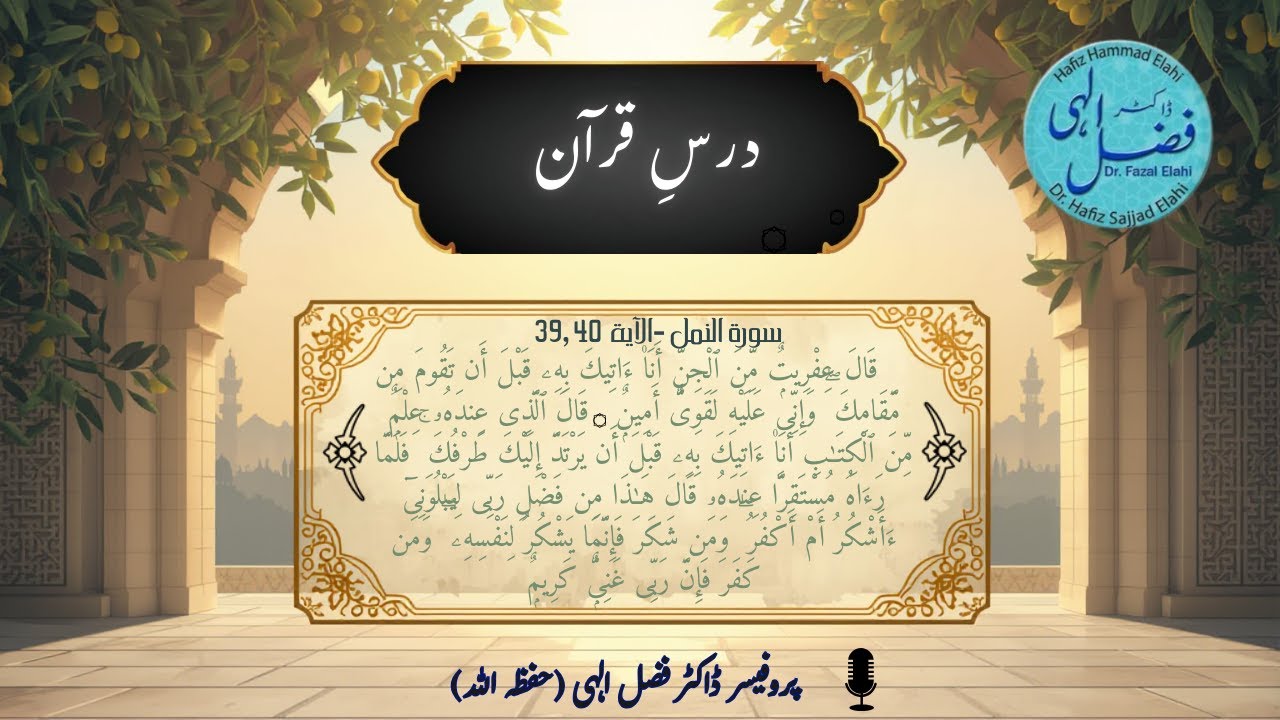 درسِ قرآن
Hafiz Hammad Elahi
ڈاکٹر
فضل الہی
Dr. Fazal Elahi
Dr. Hafiz Sajjad Elahi
سورة النمل -الآية 39, 40
قَالَ عِفْرِيتٌ مِّنَ ٱلْجِنِّ أَنَا۠ ءَاتِيكَ بِهِۦ قَبْلَ أَن تَقُومَ مِن
مَّقَامِكَ ۖ وَإِنِّى عَلَيْهِ لَقَوِىٌّ أَمِينٌ قَالَ ٱلَّذِى عِندَهُۥ عِلْمٌ
مِّنَ ٱلْكِتَـٰبِ أَنَا۠ ءَاتِيكَ بِهِۦ قَبْلَ أَن يَرْتَدَّ إِلَيْكَ طَرْفُكَ ۚ فَلَمَّا
رَءَاهُ مُسْتَقِرًّا عِندَهُۥ قَالَ هَـٰذَا مِن فَضْلِ رَبِّى لِيَبْلُوَنِىٓ
ءَأَشْكُرُ أَمْ أَكْفُرُ ۖ وَمَن شَكَرَ فَإِنَّمَا يَشْكُرُ لِنَفْسِهِۦ ۖ وَمَن
كَفَرَ فَإِنَّ رَبِّى غَنِىٌّ كَرِيمٌ
پروفیسر ڈاکٹر فضل الہی (حفظہ اللہ)